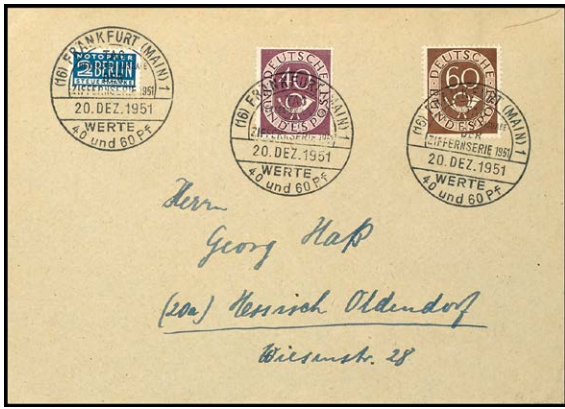 NOTOPFER
2 BERLIN
STEUERMARKE
(16) FRANKFURT (MAIN) 1
TAG
ZIFFERNSERIE 1951
20. DEZ. 1951
WERTE
40 und 60 Pf
DEUTSCHE
40
BUNDESPOST
(16) FRANKFURT (MAIN) 1
ZIFFERNSERIE 1951
20. DEZ. 1951
WERTE
40 und 60 Pf
DEUTSCHE
60
BUNDESPOST
(16) (MAIN) 1
DER
ZIFFERNSERIE 1951
20. DEZ. 1951
WERTE
40 und 60 Pf
Herrn
Georg Haß
(20a) Hessisch Oldendorf
Wiesenstr. 28